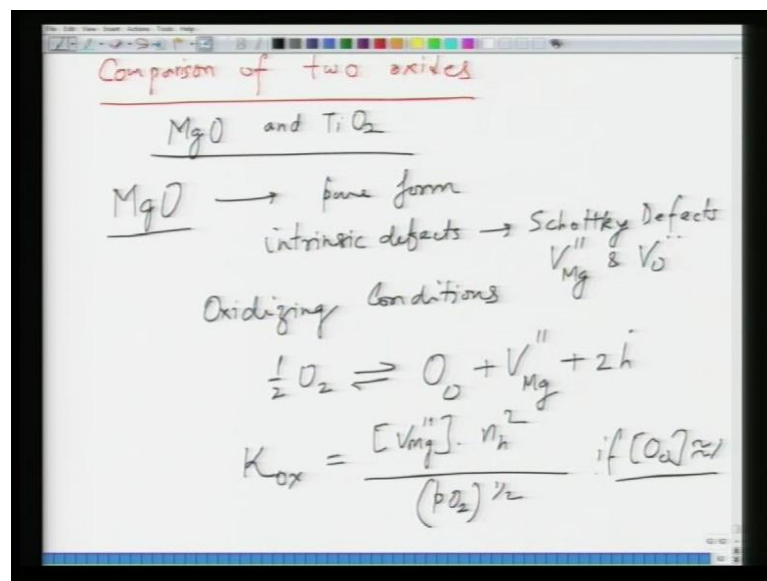 File Edit View Insert Actions Tools Help
Comparison of two oxides
MgO and TiO₂
MgO → pure form
intrinsic defects → Schottky Defects
V''Mg & V̈O
Oxidizing Conditions
½ O₂ ⇌ OO + V''Mg + 2ḣ
Kox = [V''Mg] · nh² / (pO₂)^1/2 if [OO] ≈ 1